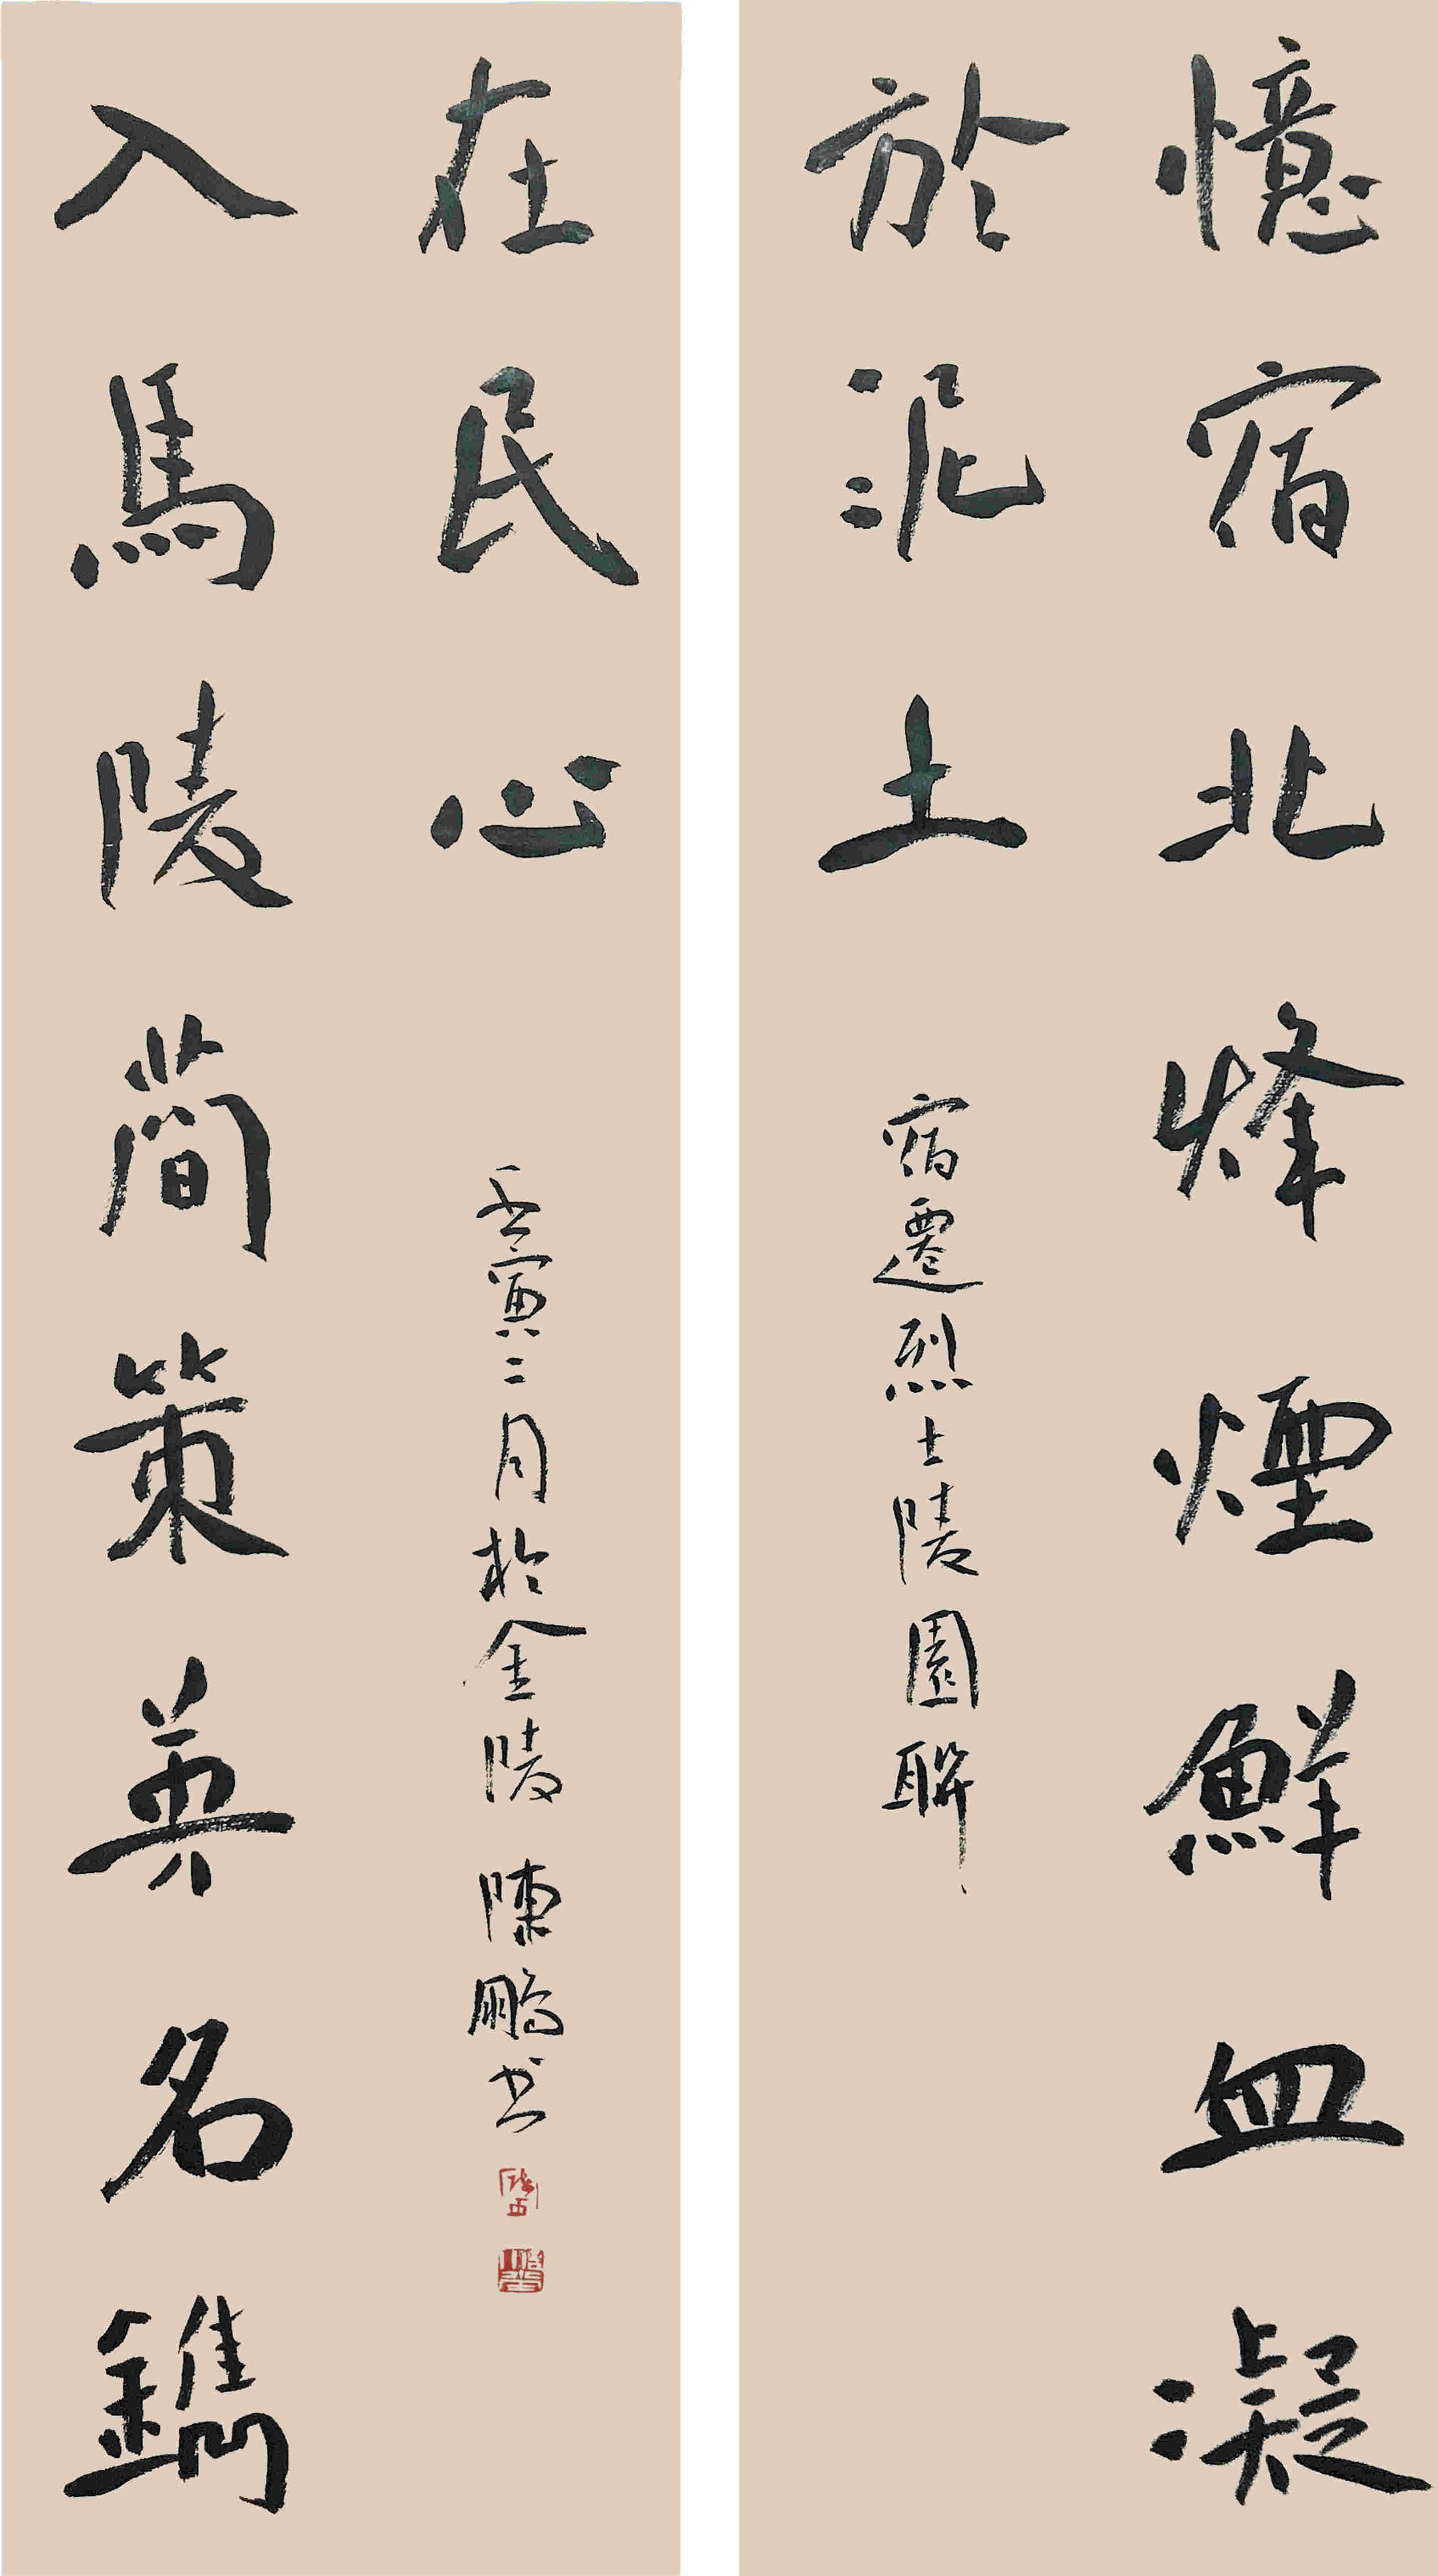 憶宿北烽煙鮮血凝
於泥土
宿遷烈士陵園聯
入馬陵簡策英名鐫
在民心
壬寅二月於金陵 陳鵬书